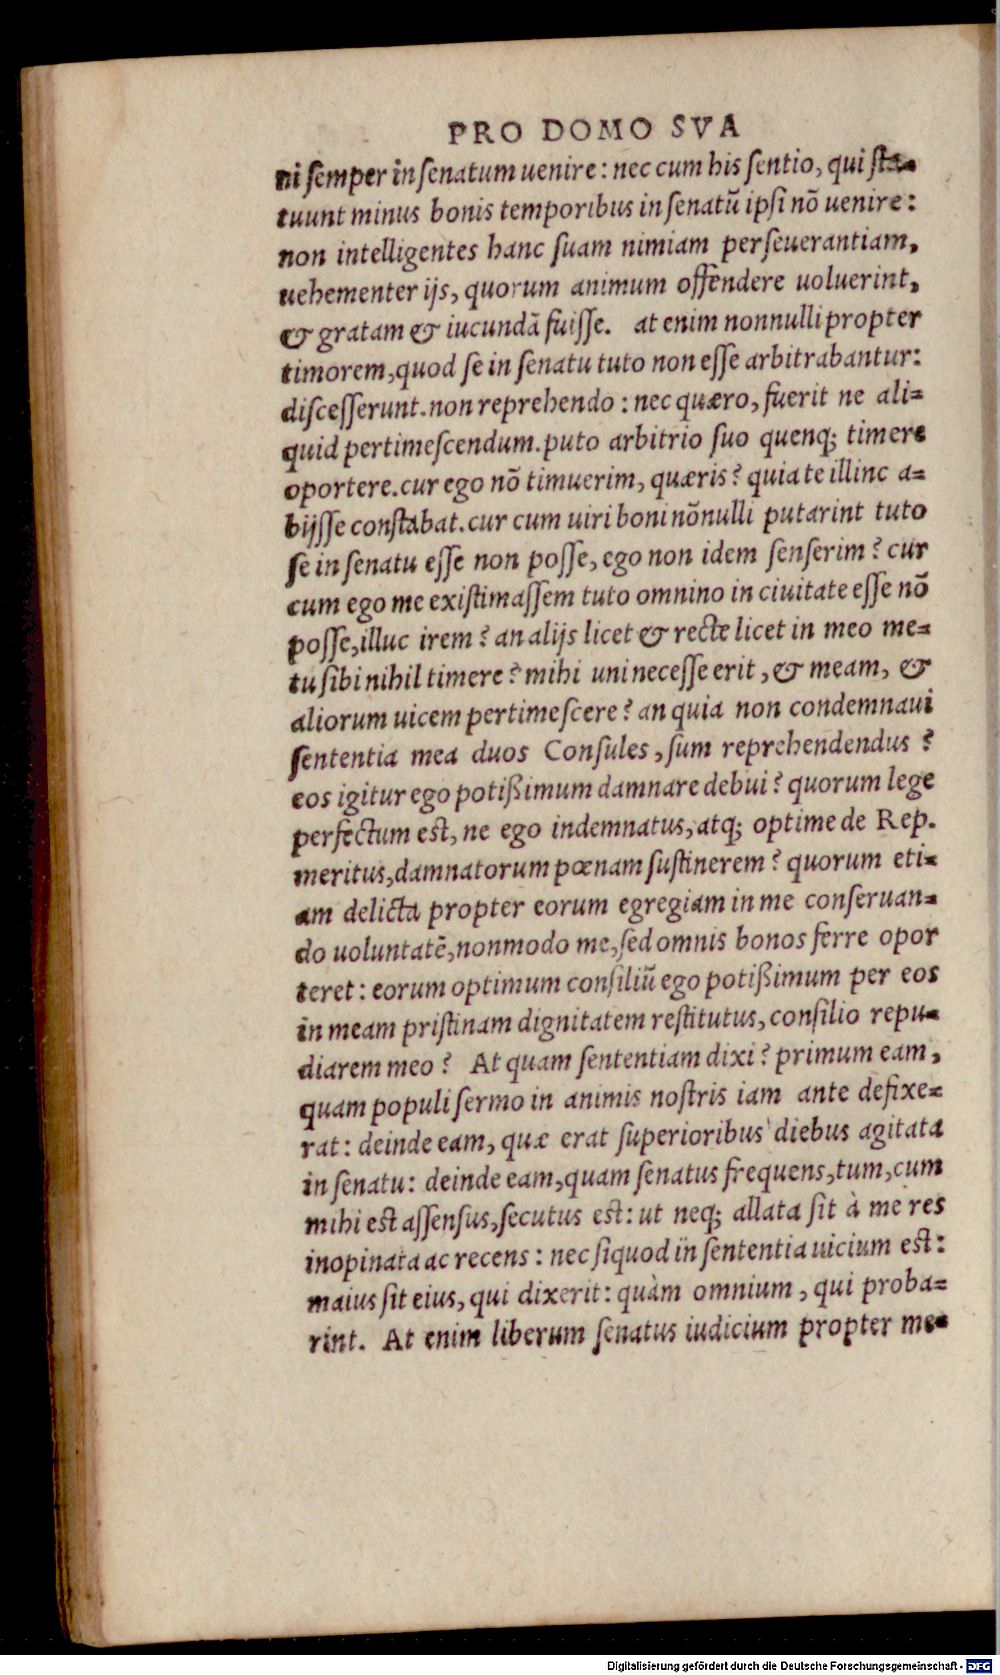 PRO DOMO SVA
ni semper in senatum uenire: nec cum his sentio, qui sta-
tuunt minus bonis temporibus in senatū ipsi nō uenire:
non intelligentes hanc suam nimiam perseuerantiam,
uehementer ijs, quorum animum offendere uoluerint,
& gratam & iucundā fuisse. at enim nonnulli propter
timorem, quod se in senatu tuto non esse arbitrabantur:
discesserunt. non reprehendo: nec quæro, fuerit ne ali-
quid pertimescendum. puto arbitrio suo quenq; timere
oportere. cur ego nō timuerim, quæris? quia te illinc a-
bijsse constabat. cur cum uiri boni nōnulli putarint tuto
se in senatu esse non posse, ego non idem senserim? cur
cum ego me existimassem tuto omnino in ciuitate esse nō
posse, illuc irem? an alijs licet & recte licet in meo me-
tu sibi nihil timere? mihi uni necesse erit, & meam, &
aliorum uicem pertimescere? an quia non condemnaui
sententia mea duos Consules, sum reprehendendus?
eos igitur ego potißimum damnare debui? quorum lege
perfectum est, ne ego indemnatus, atq; optime de Rep.
meritus, damnatorum pœnam sustinerem? quorum eti-
am delicta propter eorum egregiam in me conseruan-
do uoluntatē, nonmodo me, sed omnis bonos ferre opor
teret: eorum optimum consiliū ego potißimum per eos
in meam pristinam dignitatem restitutus, consilio repu-
diarem meo? At quam sententiam dixi? primum eam,
quam populi sermo in animis nostris iam ante defixe-
rat: deinde eam, quæ erat superioribus diebus agitata
in senatu: deinde eam, quam senatus frequens, tum, cum
mihi est assensus, secutus est: ut neq; allata sit à me res
inopinata ac recens: nec siquod in sententia uicium est:
maius sit eius, qui dixerit: quàm omnium, qui proba-
rint. At enim liberum senatus iudicium propter me-
Digitalisierung gefördert durch die Deutsche Forschungsgemeinschaft - DFG